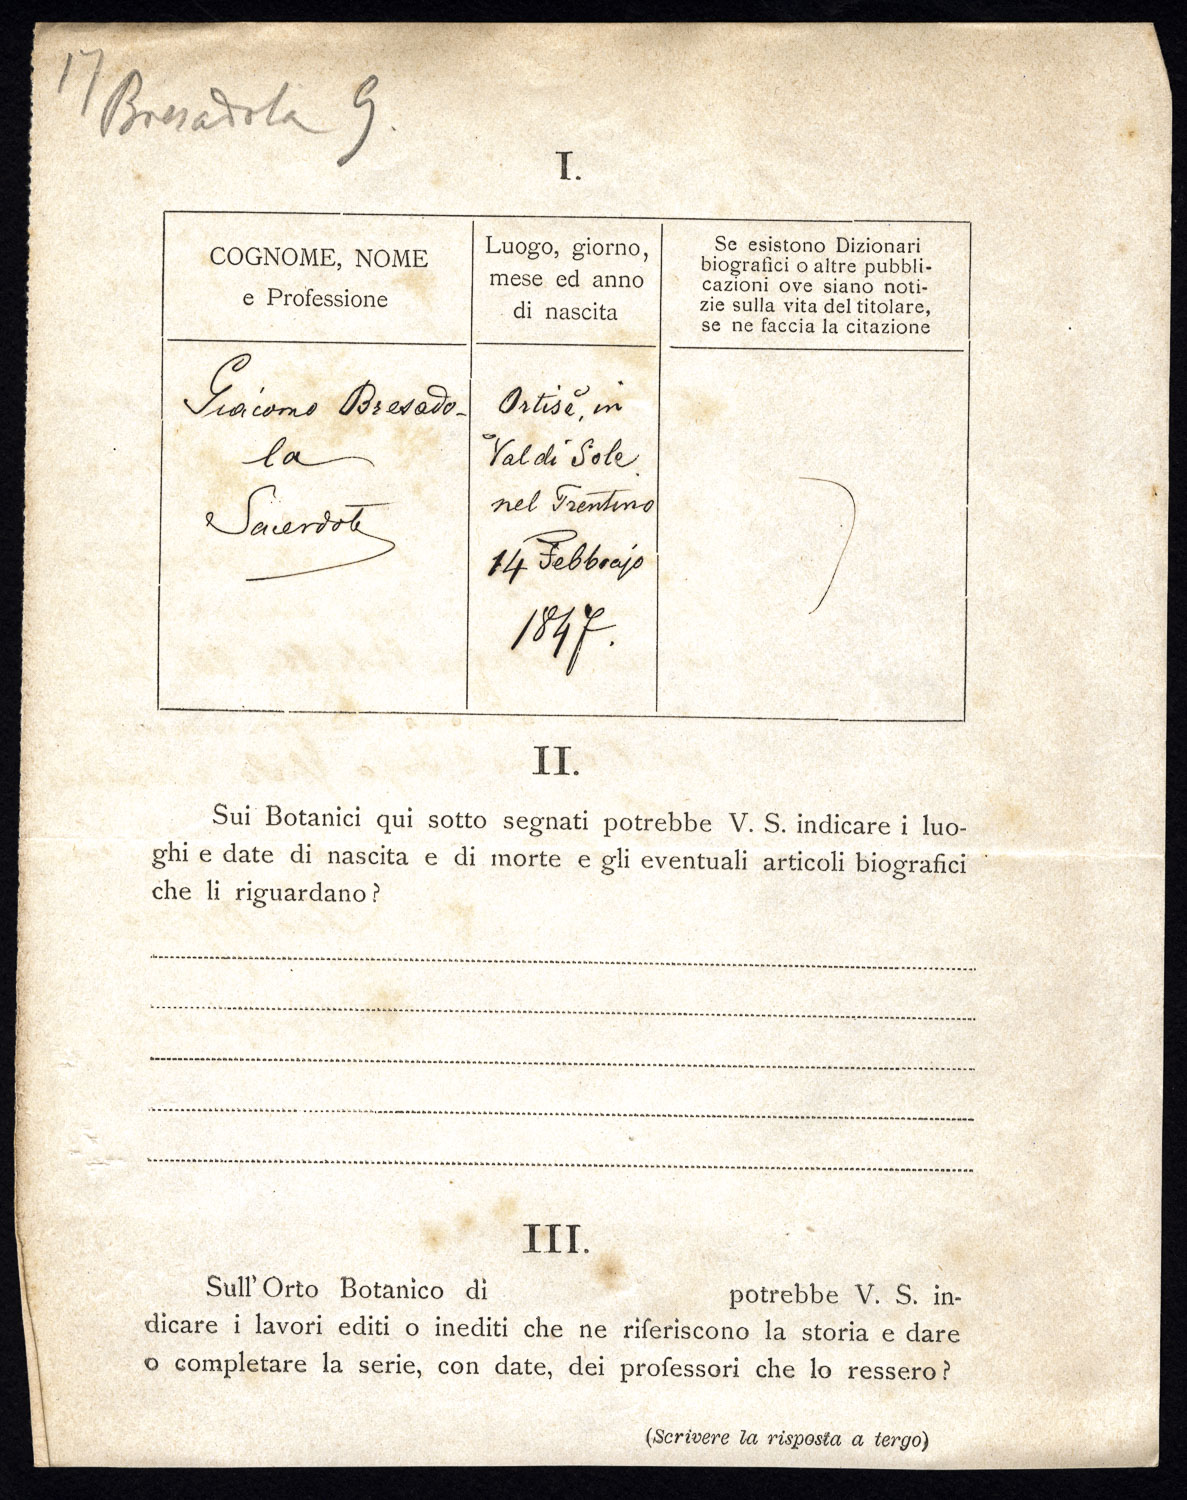 17
Bresadola G.
I.
COGNOME, NOME
e Professione
Luogo, giorno,
mese ed anno
di nascita
Se esistono Dizionari
biografici o altre pubbli-
cazioni ove siano noti-
zie sulla vita del titolare,
se ne faccia la citazione
Giacomo Bresado-
la
Sacerdote
Ortisè, in
Val di Sole
nel Trentino
14 Febbrajo
1847.
II.
Sui Botanici qui sotto segnati potrebbe V. S. indicare i luo-
ghi e date di nascita e di morte e gli eventuali articoli biografici
che li riguardano?
III.
Sull' Orto Botanico di potrebbe V. S. in-
dicare i lavori editi o inediti che ne riferiscono la storia e dare
o completare la serie, con date, dei professori che lo ressero?
(Scrivere la risposta a tergo)